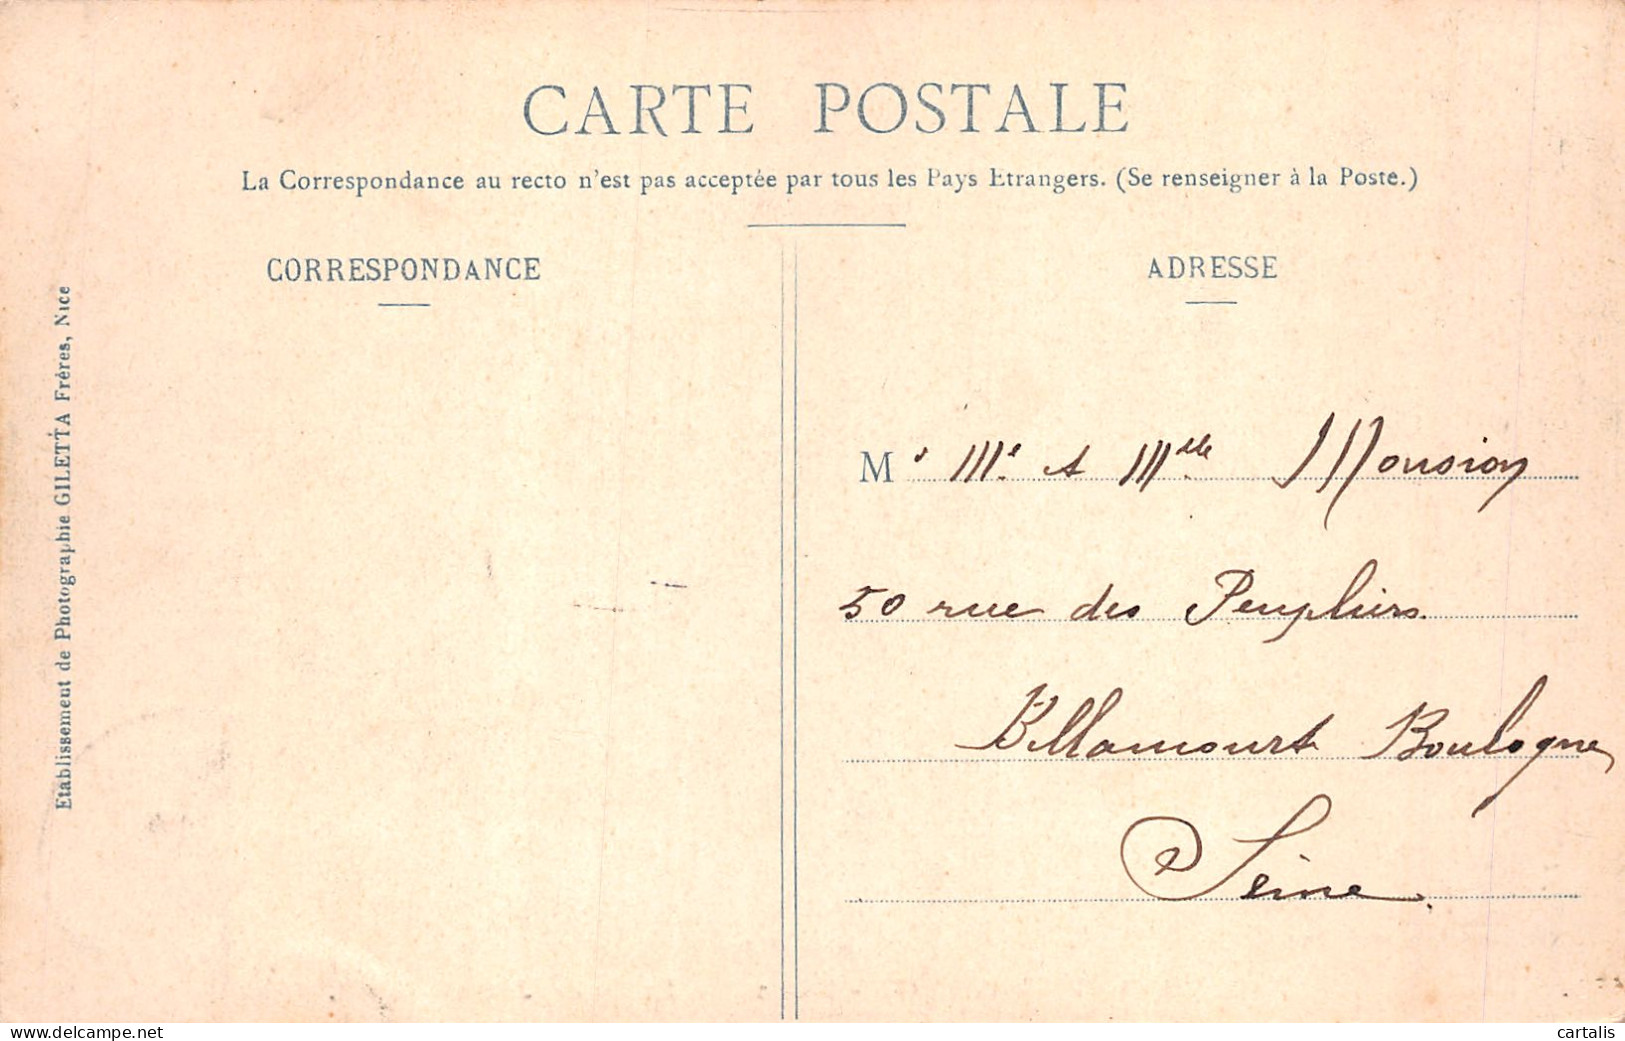 CARTE POSTALE
La Correspondance au recto n'est pas acceptée par tous les Pays Etrangers. (Se renseigner à la Poste.)
CORRESPONDANCE
Etablissement de Photographie GILETTA Frères, Nice
ADRESSE
M
50 rue des Peupliers
Billancourt Boulogne
Seine
cartalis
delcampe.net